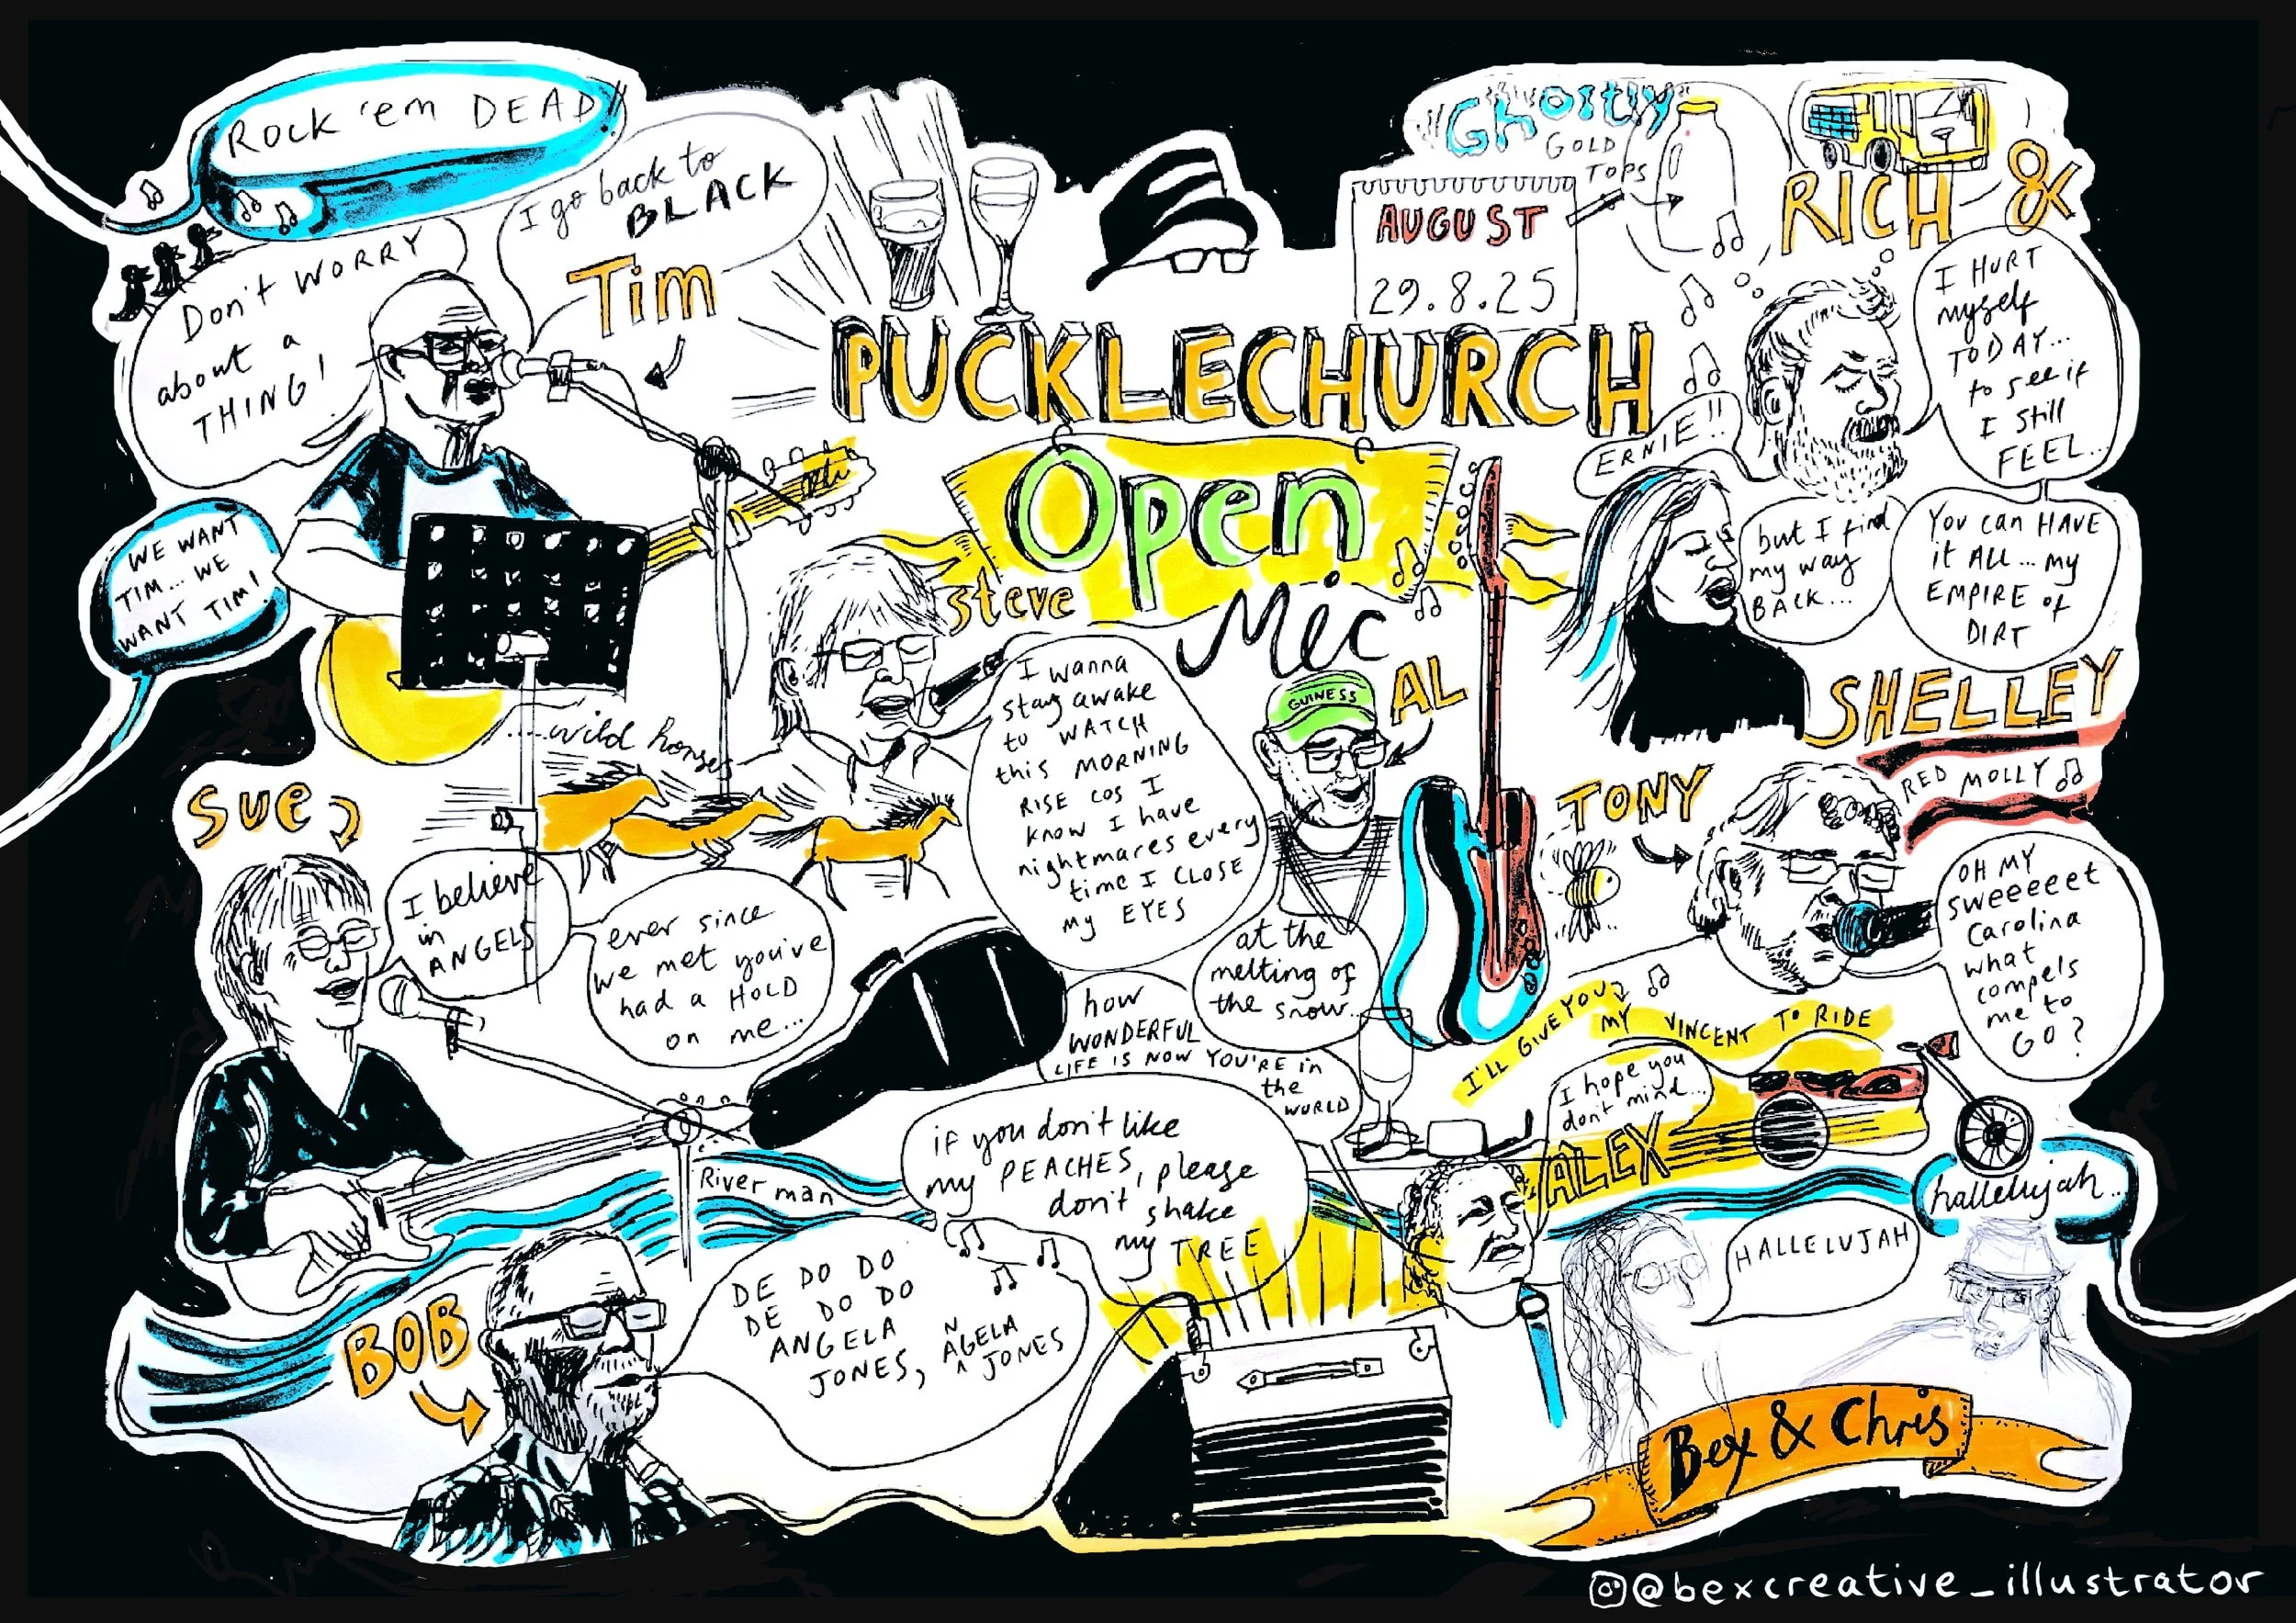 ROCK 'em DEAD!!
I go back to
BLACK
Tim
Don't WORRY
about a
THING!
WE WANT
TIM... WE
WANT TIM!
Ghostly
GOLD
TOPS
AUGUST
29.8.25
PUCKLECHURCH
Open
Mic
RICH &
SHELLEY
I HURT
myself
TODAY...
to see if
I still
FEEL...
ERNIE!!
but I find
my way
BACK...
You can HAVE
it ALL... my
EMPIRE of
DIRT
steve
....wild horses
I wanna
stay awake
to WATCH
this MORNING
RISE COS I
KNOW I have
nightmares every
time I CLOSE
my EYES
AL
GUINESS
at the
melting of
the snow...
TONY
RED MOLLY
OH MY
sweeeeet
Carolina
what
compels
me to
GO?
I'LL GIVE YOU MY VINCENT TO RIDE
Sue
I believe
in
ANGELS
ever since
we met you've
had a HOLD
on me...
how
WONDERFUL
LIFE IS NOW YOU'RE in
the
WORLD
I hope you
don't mind...
ALEX
River man
if you don't like
my PEACHES, please
don't shake
my TREE
BOB
DE DO DO
DE DO DO
ANGELA
JONES, ANGELA
JONES
hallelujah...
HALLELUJAH
Bex & Chris
@bexcreative_illustrator